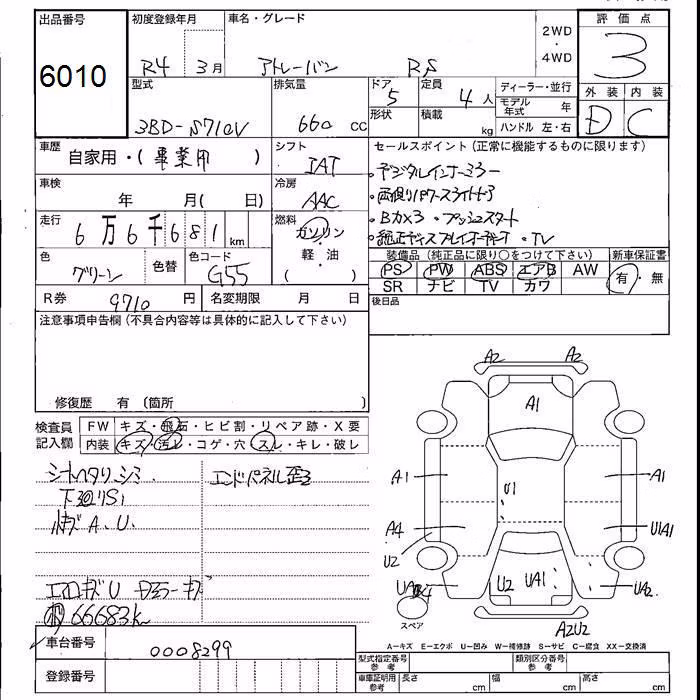 出品番号
6010
初度登録年月
R4 3月
車名・グレード
アトレーバン RS
2WD
・
4WD
評価点
3
外装 内装
D C
型式
3BD-S710V
排気量
660 cc
ドア
5
形状
定員
4人
積載
kg
ディーラー・並行
モデル年式 年
ハンドル 左・右
車歴
自家用・(事業用)
シフト
IAT
車検
年 月( 日)
冷房
AAC
走行
6万6千681km
燃料
ガソリン
・
軽・油
( )
色
グリーン
色替
色コード
G55
R券 9710円
名変期限 月 日
セールスポイント(正常に機能するものに限ります)
・デジタルインナーミラー
・両側パワースライドドア
・Bカ×3 ・プッシュスタート
・純正ディスプレイオーディオ ・TV
装備品(純正品に限り○をつけて下さい)
PS PW ABS エアB AW
SR ナビ TV カワ
新車保証書
有・無
後日品
注意事項申告欄(不具合内容等は具体的に記入して下さい)
修復歴 有 〔箇所 〕
検査員
記入欄
FW キズ・飛石・ヒビ割・リペア跡・X要
内装 キズ・汚レ・コゲ・穴・スレ・キレ・破レ
シートヘタリ、シミ
下廻りS1
エンドパネル歪
A、U
エアロキズU ドアミラーキズ
66683k
車台番号
0008299
登録番号
A2 A2
A1
A1 A1
U1
A4 U1A1
U2
U2 UA1
UA2
スペア
A2U2
A-キズ E-エクボ U-凹み W-補修跡 S-サビ C-腐食 XX-交換済
型式指定番号
参考
類別区分番号
参考
車庫証明用
参考
長さ cm 幅 cm 高さ cm